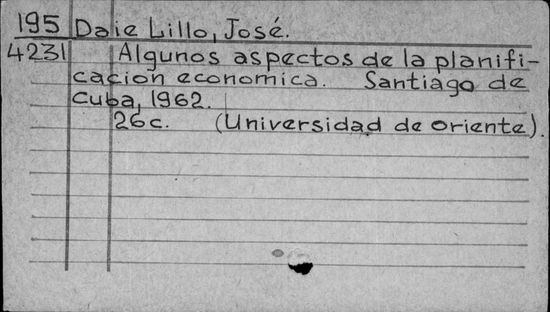 195 Daie Lillo, José.
4231 Algunos aspectos de la planifi-
cacion economica. Santiago de
Cuba, 1962.
26c. (Universidad de oriente).